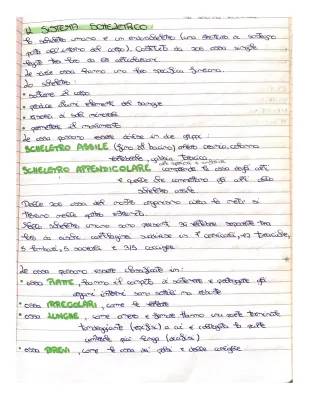 IL SISTEMA SCHELETRICO
Lo scheletro umano è un endoscheletro (una struttura di sostegno
posta all'interno del corpo). Costituito da 206 ossa singole
legate tra loro da le articolazioni
Le varie ossa hanno una loro specifica funzione.
Lo scheletro:
• sostiene il corpo
• produce alcuni elementi del sangue
• riserva di sali minerali
• permette il movimento
Le ossa possono essere divise in due gruppi:
SCHELETRO ASSILE (fino al bacino) cranio, colonna
vertebrale, gabbia toracica
SCHELETRO APPENDICOLARE comprende le ossa degli arti
e quelle che connettono gli arti allo
scheletro assile
Delle 206 ossa del nostro organismo circa la metà si
trovano nelle
Nello scheletro umano sono presenti 33 vertebre separate tra
loro da cartilagine suddivise in 7 cervicali, 12 toraciche,
5 lombari, 5 sacrali e 3/5 coccigee
Le ossa possono essere classificate in:
• ossa PIATTE, hanno il compito di sostenere e proteggere gli
organi interni sono sottili
• ossa IRREGOLARI, come le vertebre
• ossa LUNGHE, come omero e femore hanno una parte terminale
tondeggiante (epifisi) a cui è collegata la parte
centrale più lunga (diafisi)
• ossa BREVI, come le ossa dei polsi e delle caviglie